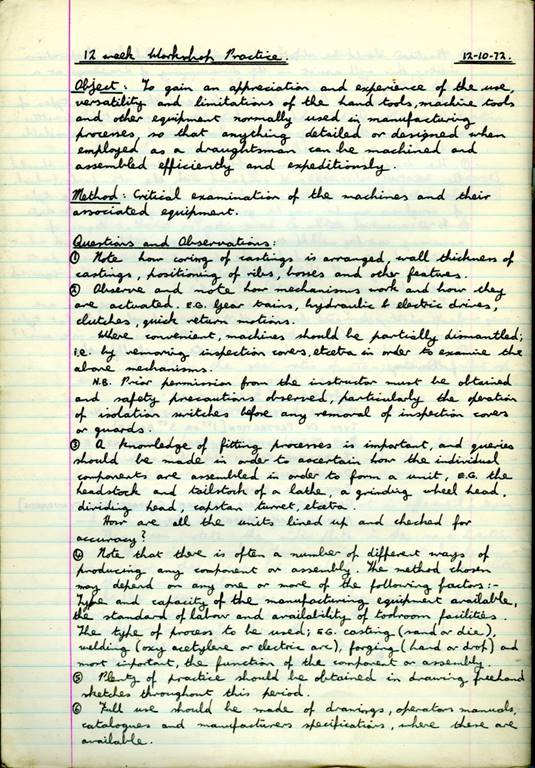 12 week Workshop Practice. 12-10-72.
Object: To gain an appreciation and experience of the use,
versatility and limitations of the hand tools, machine tools
and other equipment normally used in manufacturing
processes, so that anything detailed or designed when
employed as a draughtsman can be machined and
assembled efficiently and expeditiously.
Method: Critical examination of the machines and their
associated equipment.
Questions and Observations:
① Note how coring of castings is arranged, wall thickness of
castings, positioning of ribs, bosses and other features.
② Observe and note how mechanisms work and how they
are actuated. E.G. Gear trains, hydraulic & electric drives,
clutches, quick return motions.
Where convenient, machines should be partially dismantled;
i.e. by removing inspection covers, etcetra in order to examine the
above mechanisms.
N.B. Prior permission from the instructor must be obtained
and safety precautions observed, particularly the operation
of isolation switches before any removal of inspection covers
or guards.
③ A knowledge of fitting processes is important, and queries
should be made in order to ascertain how the individual
components are assembled in order to form a unit, E.G. the
headstock and tailstock of a lathe, a grinding wheel head,
dividing head, capstan turret, etcetra.
How are all the units lined up and checked for
accuracy?
④ Note that there is often a number of different ways of
producing any component or assembly. The method chosen
may depend on any one or more of the following factors:-
Type and capacity of the manufacturing equipment available,
the standard of labour and availability of toolroom facilities.
The type of process to be used; E.G. casting (sand or die),
welding (oxy acetylene or electric arc), forging (hand or drop) and
most important, the function of the component or assembly.
⑤ Plenty of practice should be obtained in drawing freehand
sketches throughout this period.
⑥ Full use should be made of drawings, operators manuals,
catalogues and manufacturers specifications, where these are
available.